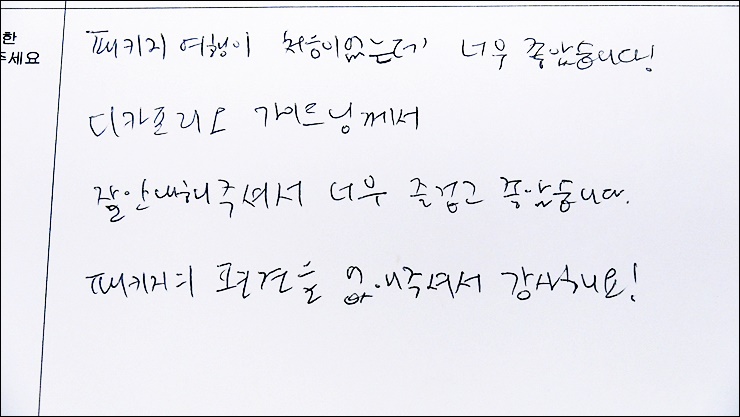 한
주세요
패키지 여행이 처음이었는데 너무 좋았습니다!
디카프리오 가이드님께서
잘 안내해주셔서 너무 즐겁고 좋았습니다.
패키지의 편견을 없애주셔서 감사해요!